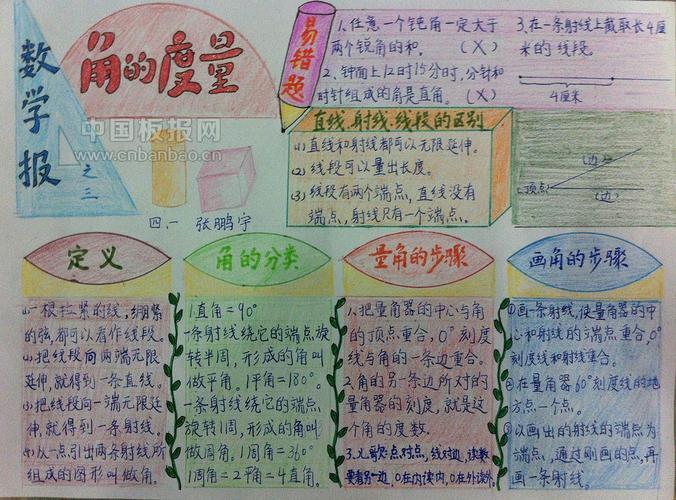 数学报
之三
角的度量
中国板报网
www.cnbanbao.cn
四.一 张鹏宇
易错题
1、任意一个钝角一定大于
两个锐角的和。 (X)
2、钟面上12时15分时,分针和
时针组成的角是直角。 (X)
3、在一条射线上截取长4厘
米的线段。
4厘米
直线、射线、线段的区别
(1) 直线和射线都可以无限延伸。
(2) 线段可以量出长度。
(3) 线段有两个端点,直线没有
端点,射线只有一个端点。
(边)
(顶点)
(边)
定义
(1)一根拉紧的线,绷紧
的弦,都可以看作线段。
(2)把线段向两端无限
延伸,就得到一条直线。
(3)把线段向一端无限延
伸,就得到一条射线。
(4)从一点引出两条射线所
组成的图形叫做角。
角的分类
1直角=90°
一条射线绕它的端点旋
转半周,形成的角叫
做平角。1平角=180°。
一条射线绕它的端点
旋转1周,形成的角叫
做周角。1周角=360°
1周角=2平角=4直角。
量角的步骤
1、把量角器的中心与角
的顶点重合,0°刻度
线与角的一条边重合。
2.角的另一条边所对的
量角器的刻度,就是这
个角的度数。
3、儿歌:点对点,线对边,读数
要看另一边,0在内读内,0在外读外。
画角的步骤
①画一条射线,使量角器的中
心和射线的端点重合,0°
刻度线和射线重合。
②在量角器60°刻度线的地
方点一个点。
③以画出的射线的端点为
端点,通过刚画的点,再
画一条射线。